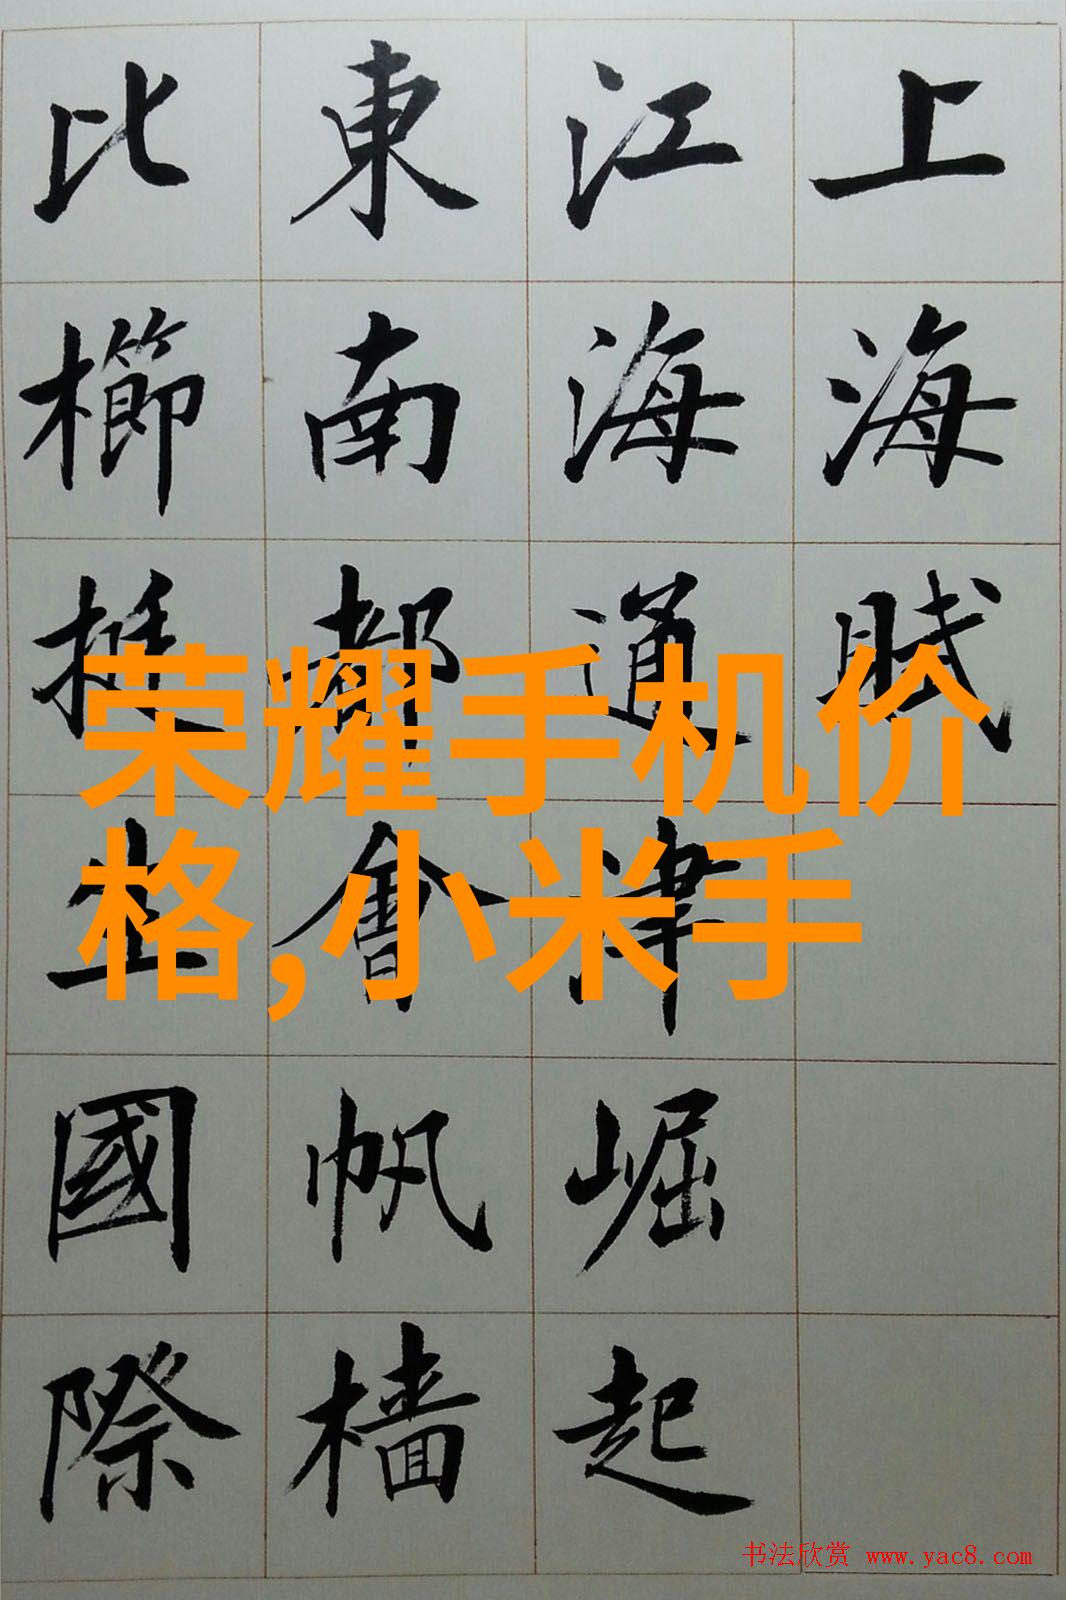 上海賦
江海通津崛起
東南都會帆檣
比櫛挺立國際
荣耀手机价
格,小米手
书法欣赏 www.yac8.com